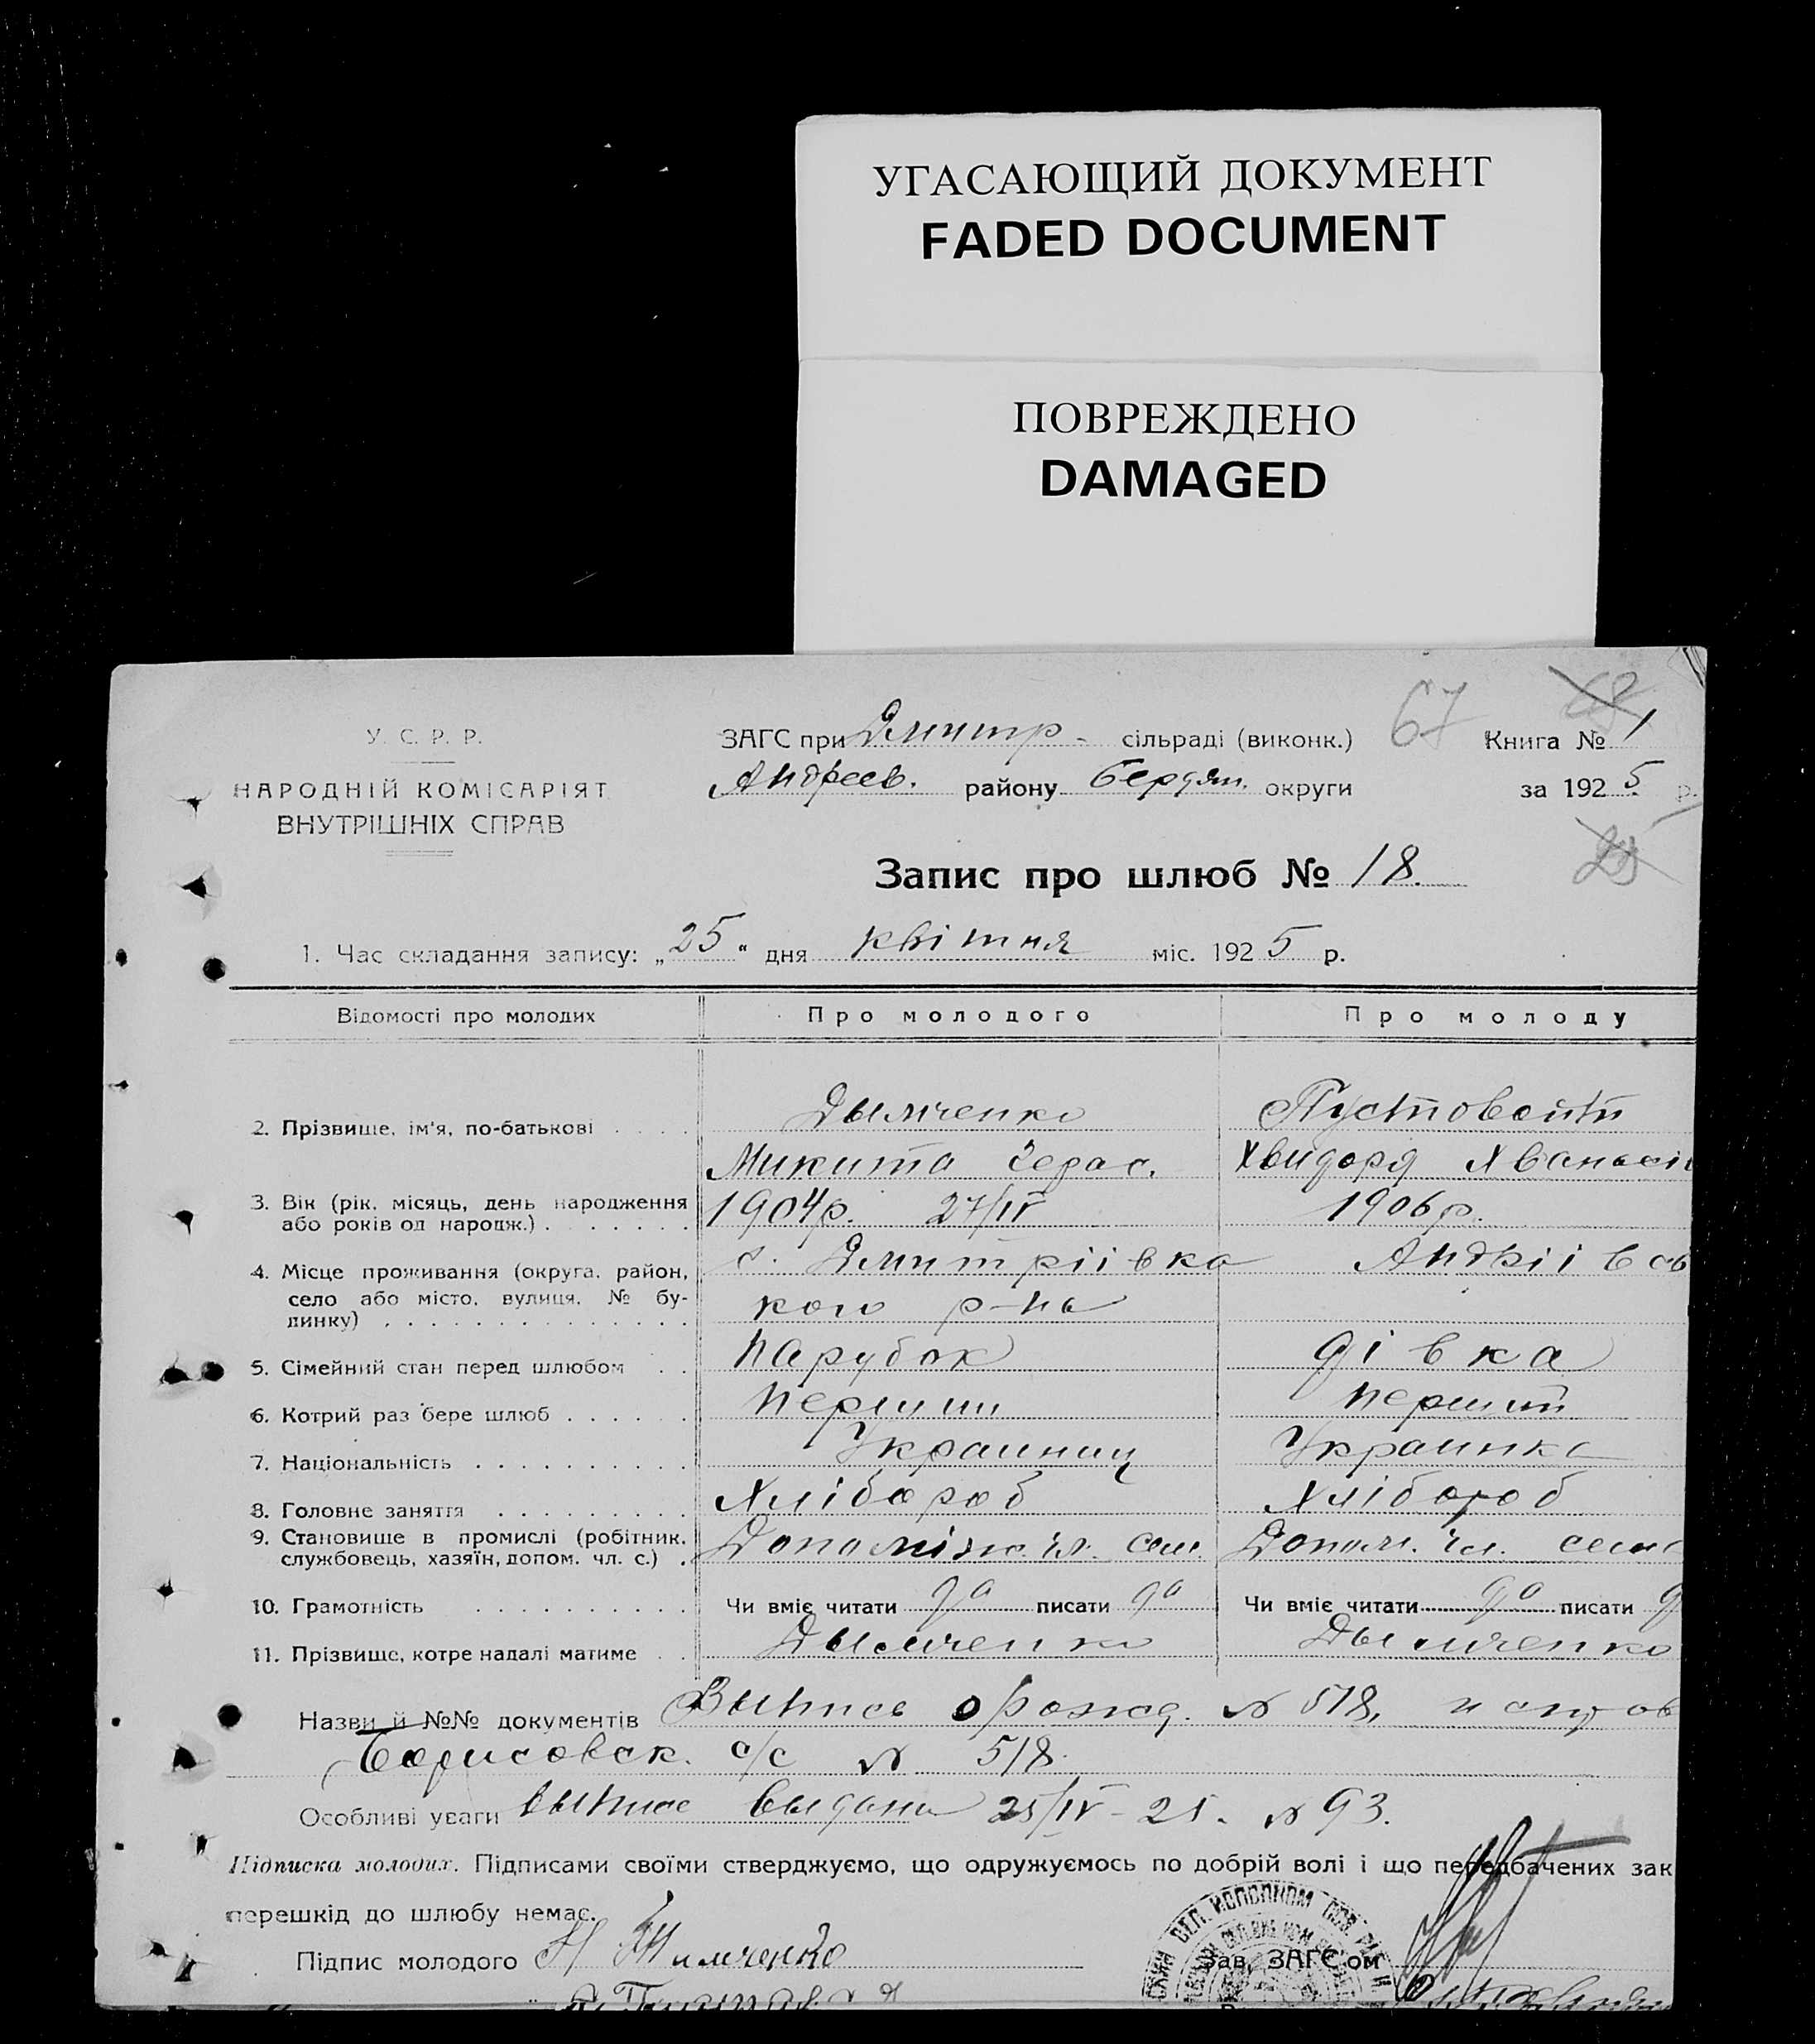 УГАСАЮЩИЙ ДОКУМЕНТ
FADED DOCUMENT
ПОВРЕЖДЕНО
DAMAGED
У. С. Р. Р.
НАРОДНІЙ КОМІСАРІЯТ
ВНУТРІШНІХ СПРАВ
ЗАГС при Дмитр. сільраді (виконк.)
67
Книга № 1
Андреев. району Бердян. округи
за 1925 р.
Запис про шлюб № 18.
1. Час складання запису: „25“ дня квітня міс. 1925 р.
Відомості про молодих Про молодого Про молоду
2. Прізвище, ім'я, по-батькові Дымченко Пустовойт
Микита Герас. Хвидора
3. Вік (рік, місяць, день народження 1904р. 27/IV 1906р.
або років од народж.)
4. Місце проживання (округа, район, с. Дмитріівка Андріівсь
село або місто, вулиця, № бу- кого р-на
динку)
5. Сімейний стан перед шлюбом Парубок дівка
6. Котрий раз бере шлюб Перший Перший
7. Національність Украинец Украинка
8. Головне заняття Хлібороб Хлібороб
9. Становище в промислі (робітник, Допоміж. чл. сем. Допом. чл. сем
службовець, хазяїн, допом. чл. с.)
10. Грамотність Чи вміє читати да писати да Чи вміє читати да писати д
11. Прізвище, котре надалі матиме Дымченко Дымченко
Назви й №№ документів Выпись о рожд. № 518, и
Борисовск. с/с № 518.
Особливі уваги выпись выдана 25/IV-25. № 93.
Підписка молодих. Підписами своїми стверджуємо, що одружуємось по добрій волі і що передбачених зак
перешкід до шлюбу немає.
Підпис молодого Н Тимченко
Зав. ЗАГС'ом